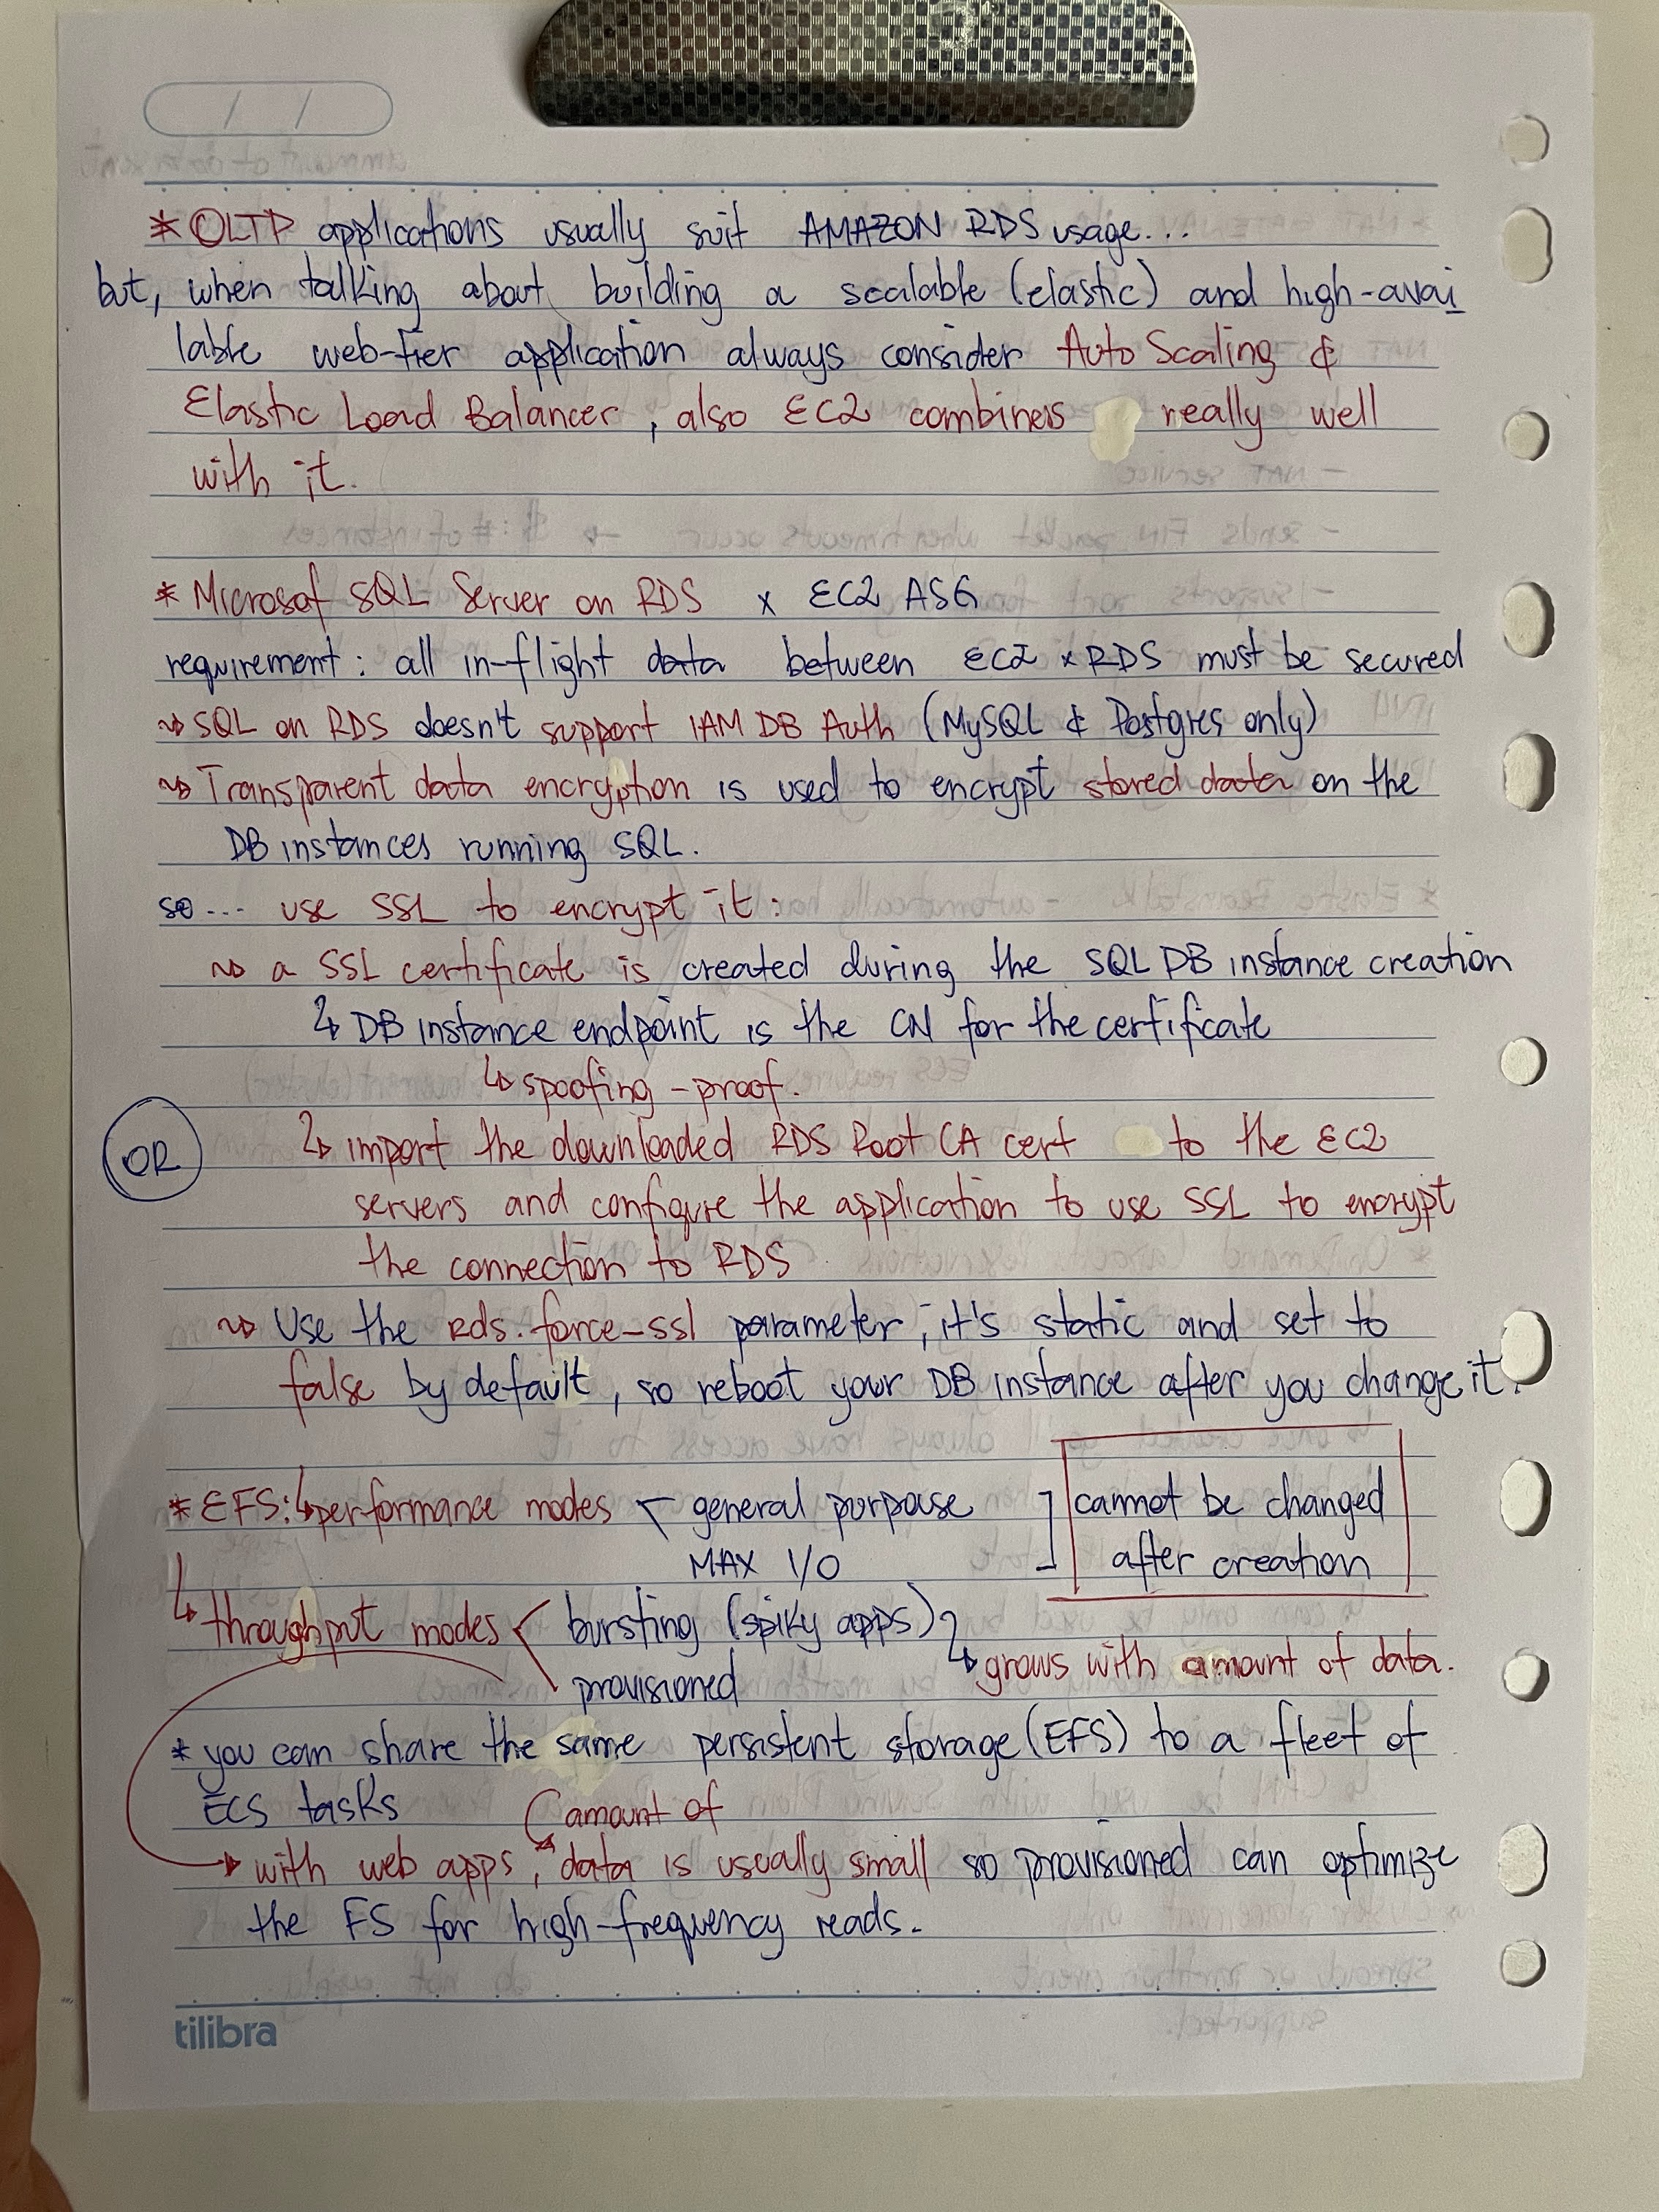 * OLTP applications usually suit AMAZON RDS usage...
but, when talking about building a scalable (elastic) and high-avai
lable web-tier application always consider Auto Scaling &
Elastic Load Balancer, also EC2 combines really well
with it.
* Microsof SQL Server on RDS x EC2 ASG
requirement: all in-flight data between EC2 x RDS must be secured
↝ SQL on RDS doesn't support IAM DB Auth (MySQL & Postgres only)
↝ Transparent data encryption is used to encrypt stored data on the
DB instances running SQL.
so... use SSL to encrypt it:
↝ a SSL certificate is created during the SQL DB instance creation
↳ DB instance endpoint is the CN for the certificate
↳ spoofing-proof.
OR ↳ import the downloaded RDS Root CA cert to the EC2
servers and configure the application to use SSL to encrypt
the connection to RDS
↝ Use the rds.force-ssl parameter, it's static and set to
false by default, so reboot your DB instance after you change it.
* EFS: ↳ performance modes general purpouse cannot be changed
MAX I/O after creation
↳ throughput modes bursting (spiky apps)
↳ grows with amount of data.
provisioned
* you can share the same persistent storage (EFS) to a fleet of
ECS tasks
amount of
→ with web apps, data is usually small so provisioned can optimize
the FS for high-frequency reads.
tilibra